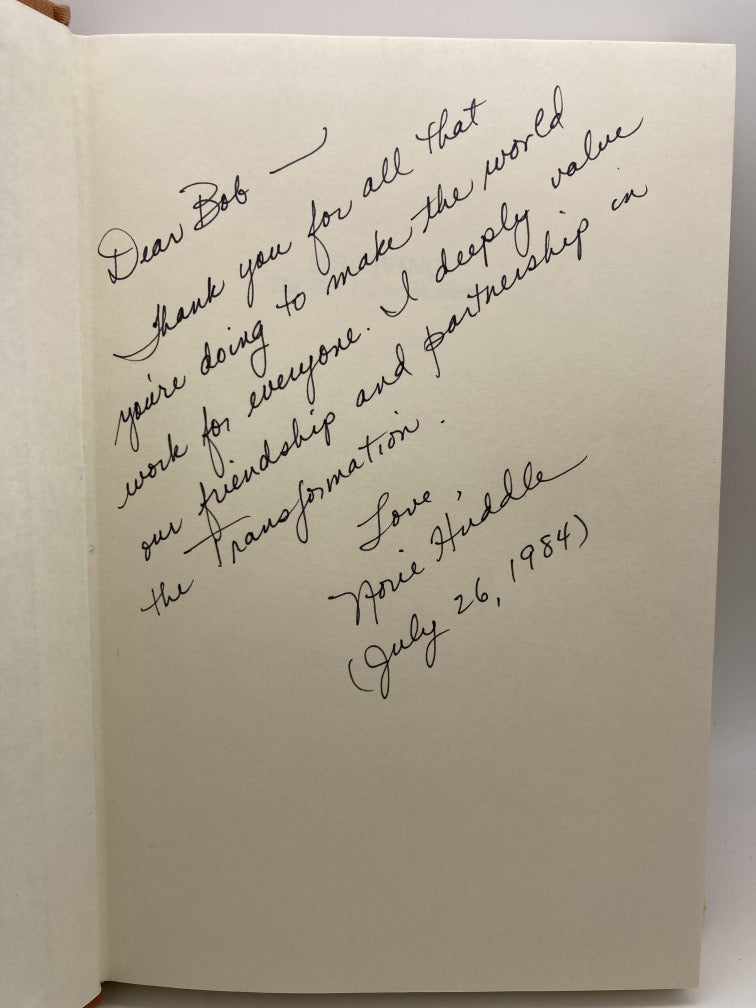 Dear Bob —
Thank you for all that
you're doing to make the world
work for everyone. I deeply value
our friendship and partnership in
the Transformation.
Love,
Norie Huddle
(July 26, 1984)